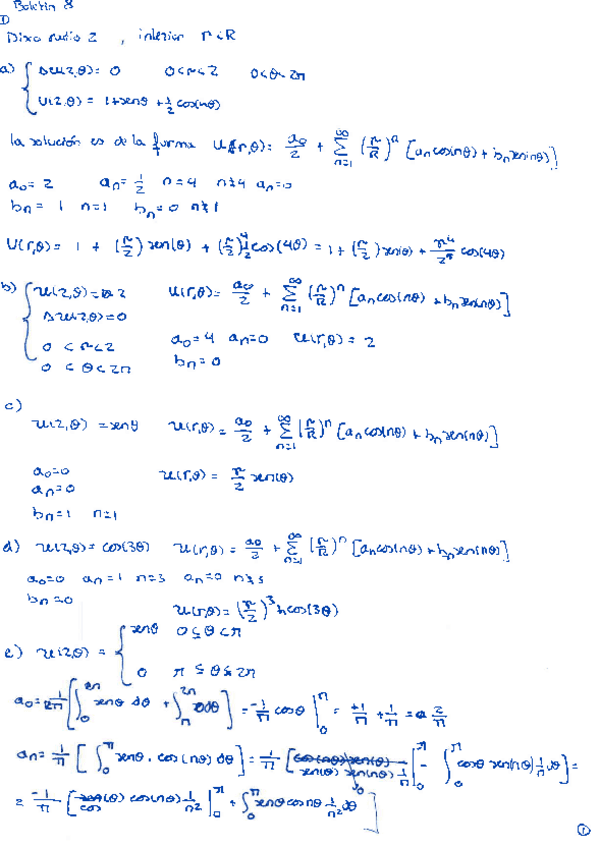 Boletín 8
①
Disco radio 2 , interior r<R
a) { Δu(2,θ)=0 0<r<2 0<θ<2π
u(2,θ) = 1+senθ + 1/2 cos(nθ)
la solución es de la forma u(r,θ): a₀/2 + ∞ Σ n=1 (r/R)ⁿ [aₙcos(nθ) + bₙsen(nθ)]
a₀=2 aₙ=1/2 n=4 n≠4 aₙ=0
bₙ=1 n=1 bₙ=0 n≠1
U(r,θ) = 1 + (r/2) sen(θ) + (r/2)⁴ 1/2 cos(4θ) = 1+(r/2) sen(θ) + r⁴/2⁵ cos(4θ)
b) { u(2,θ)=2 u(r,θ)= a₀/2 + ∞ Σ n=1 (r/R)ⁿ [aₙcos(nθ) + bₙsen(nθ)]
Δu(2,θ)=0
0<r<2 a₀=4 aₙ=0 u(r,θ) = 2
0<θ<2π bₙ=0
c)
u(2,θ) = senθ u(r,θ) = a₀/2 + ∞ Σ n=1 (r/R)ⁿ [aₙcos(nθ) + bₙsen(nθ)]
a₀=0 u(r,θ) = r/2 sen(θ)
aₙ=0
bₙ=1 n=1
d) u(2,θ)= cos(3θ) u(r,θ) = a₀/2 + ∞ Σ n=1 (r/R)ⁿ [aₙcos(nθ)+bₙsen(nθ)]
a₀=0 aₙ=1 n=3 aₙ=0 n≠3
bₙ=0
u(r,θ) = (r/2)³ cos(3θ)
e) u(2,θ) = { senθ 0≤θ<π
0 π≤θ≤2π
a₀= 1/π [∫₀ senθ dθ + ∫π 2π 0dθ] = -1/π cosθ |₀π = +1/π + 1/π = 2/π
aₙ= 1/π [∫₀π senθ · cos(nθ) dθ] = 1/π [sen(θ) sen(nθ) 1/n |₀π - ∫₀π cosθ sen(nθ) 1/n dθ] =
= -1/π [cos(θ) cos(nθ) 1/n² |₀π + ∫₀π senθ cosnθ 1/n² dθ]
①